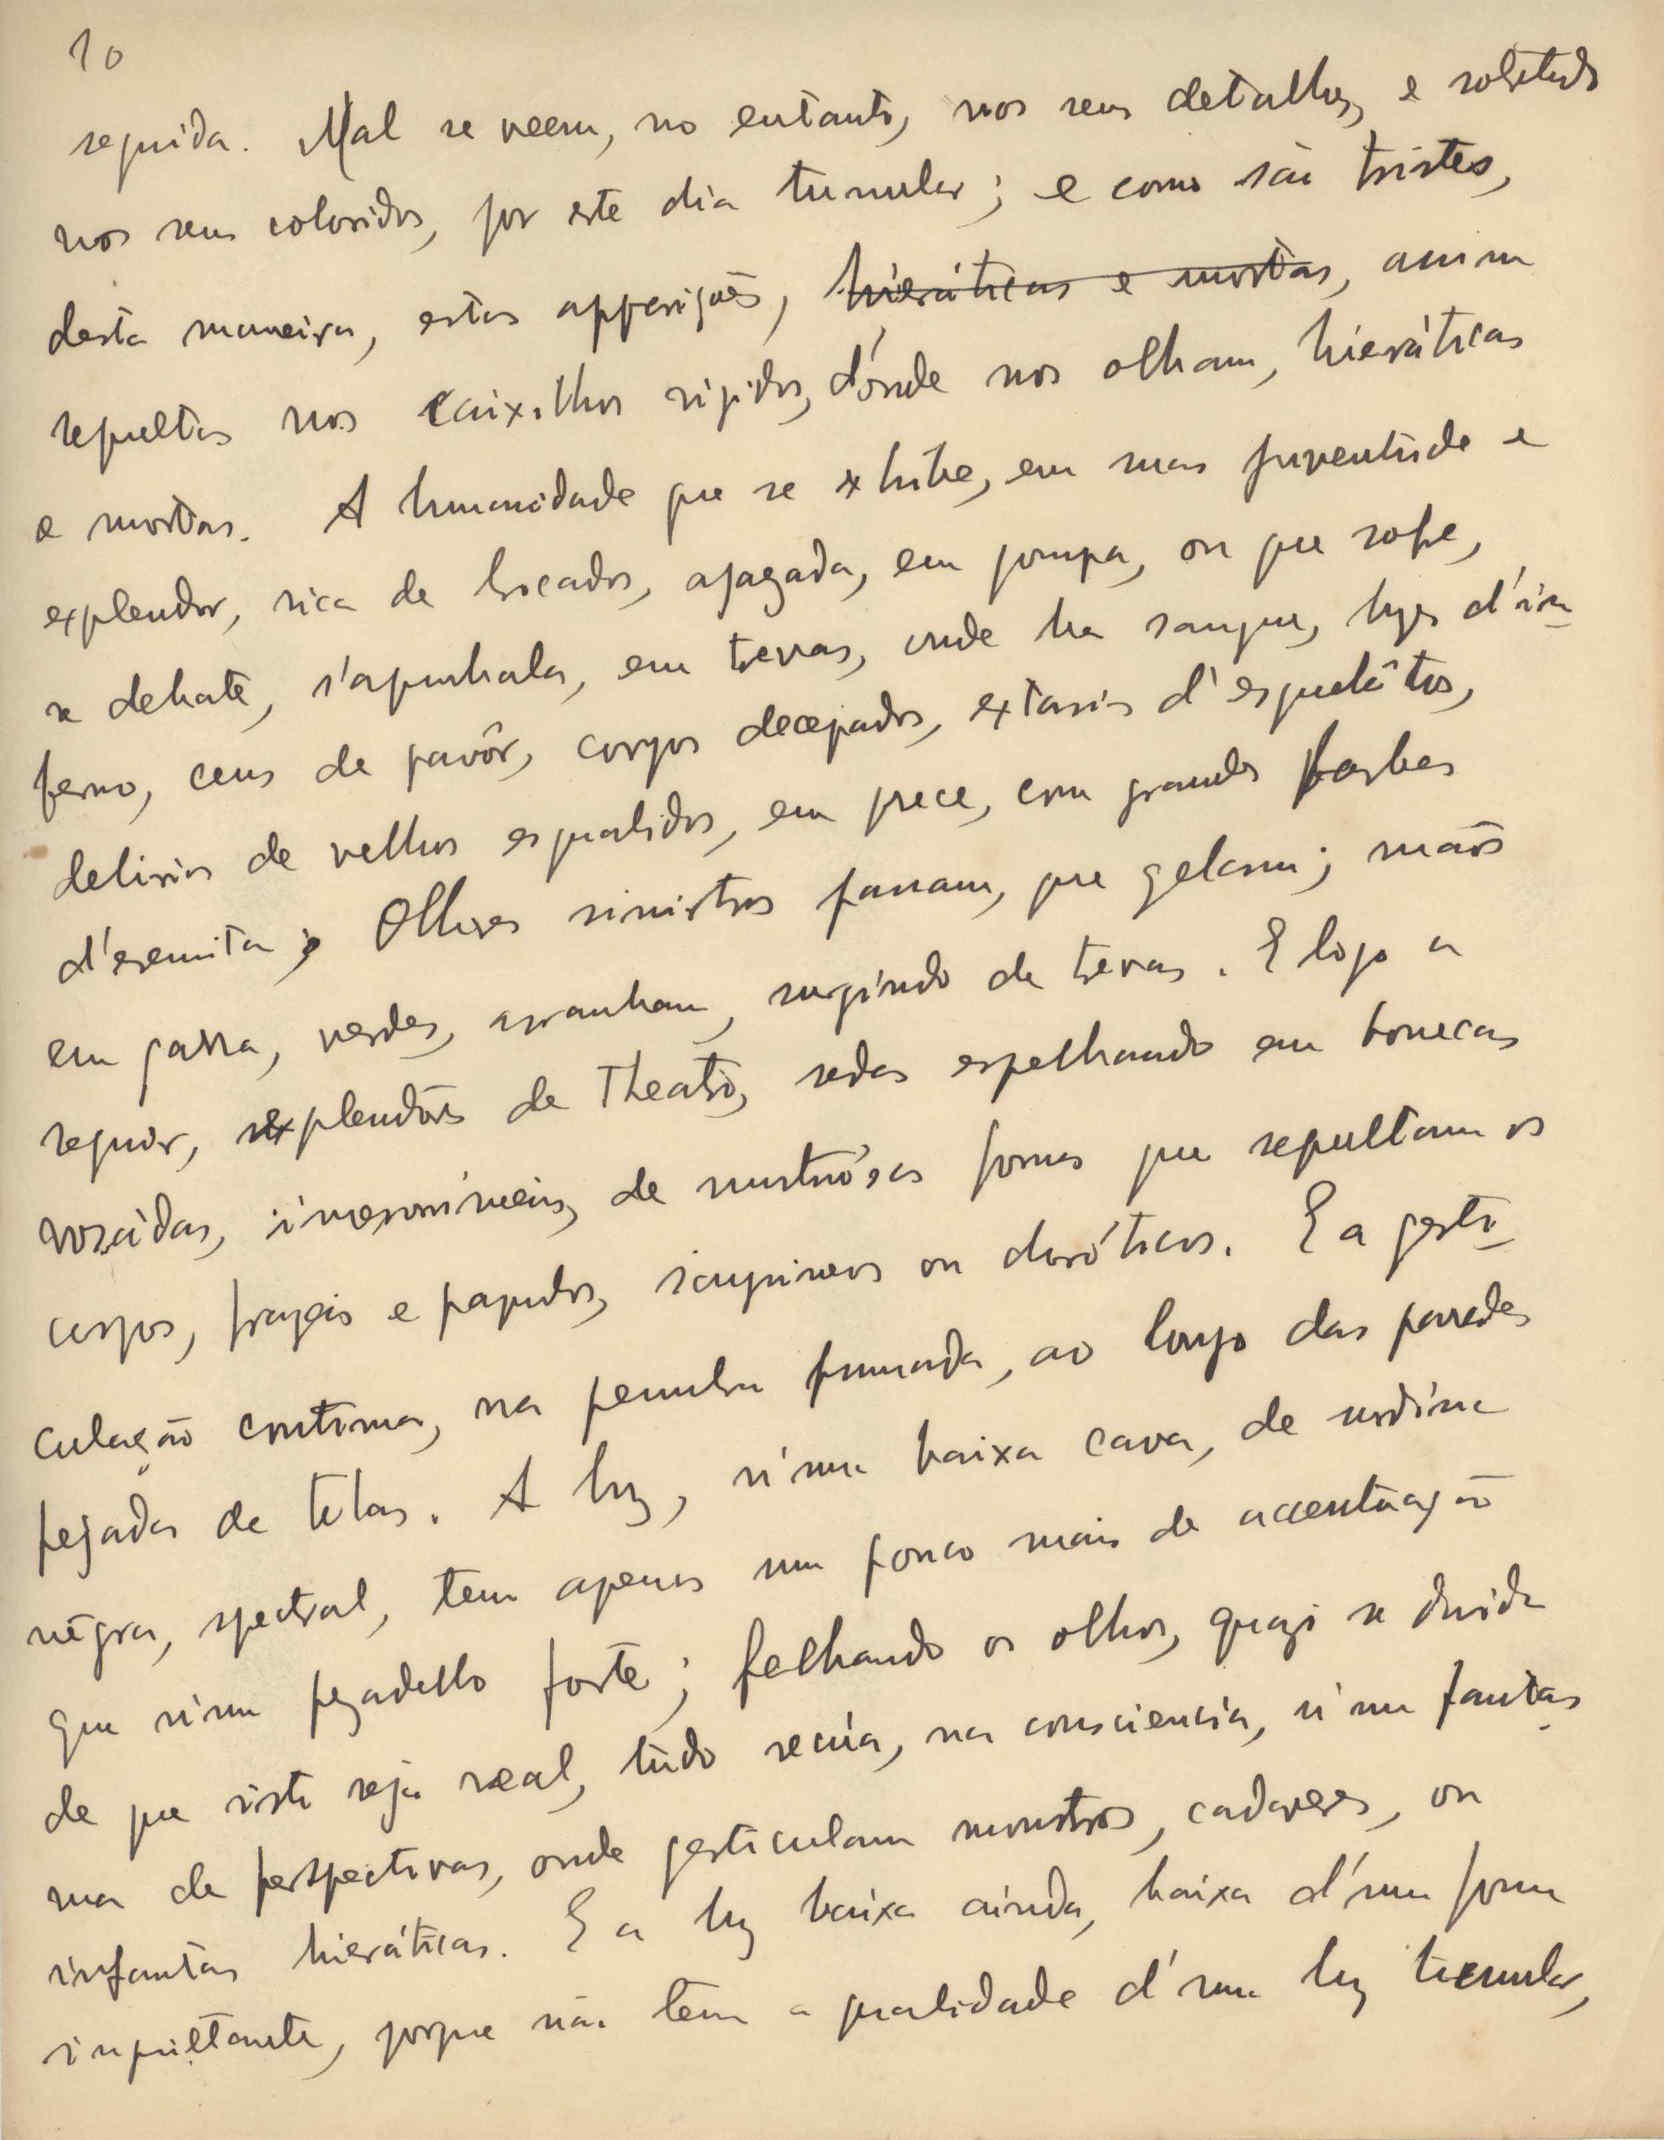 10
seguida. Mal se veem, no entanto, nos seus detalhes, e sobretudo
nos seus coloridos, por este dia tumular; e como são tristes,
desta maneira, estas apparições, hieráticas e mortas, assim
sepultas nos caixilhos rigidos, d'ónde nos olham, hieráticas
e mortas. A humanidade que se exhibe, em suas juventude e
explendor, rica de brocados, apagada, em pompa, ou que sofre,
se debate, s'apunhala, em trevas, onde ha sangue, luzes d'in-
ferno, ceus de pavôr, corpos decepados, extasis d'esquelêtos,
delirios de velhos esqualidos, em prece, com grandes barbas
d'eremita; Olhares sinistros passam, que gelam; mãos
em garra, verdes, arranham, surgindo de trevas. E logo a
seguir, explendôres de Theatro, sedas espelhando em bonecas
rosadas, inverosimeis, de mostruósas formas que sepultam os
corpos, frageis e papudos, sanguineos ou cloróticos. E a gesti-
culação continua, na penumbra fumada, ao longo das paredes
pejadas de telas. A luz, n'uma baixa cava, de surdina
négra, spectral, tem apenas um pouco mais de accentuação
que n'um pezadello forte; fechando os olhos, quazi se duvida
de que isto seja real, tudo recúa, na consciencia, n'um fantas
ma de perspectivas, onde gesticulam monstros, cadaveres, ou
infantas hieráticas. E a luz baixa ainda, baixa d'uma forma
inquiétante, porque não tem a qualidade d'uma luz tumular,